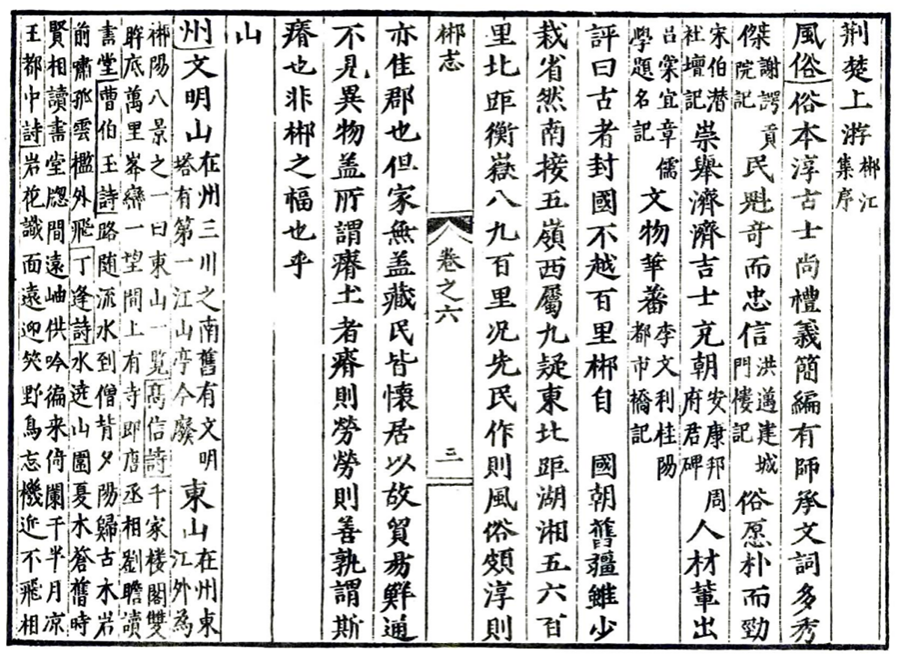 荆楚上游郴江集序
風俗俗本淳古士尚禮義簡編有師承文詞多秀
傑謝諤貢院記民魁奇而忠信洪邁建城門樓記俗愿朴而勁
宋伯潜社壇記崇舉濟濟吉士充朝安康邦周府君碑人材輩出
吕棠宜章儒學題名記文物華蕃李文利桂陽都市橋記
評曰古者封國不越百里郴自 國朝舊疆雖少
裁省然南接五嶺西屬九疑東北距湖湘五六百
里北距衡嶽八九百里况先民作則風俗頗淳則
郴志 卷之六 三
亦隹郡也但家無盖藏民皆懷居以故貿易鮮通
不見異物盖所謂瘠土者瘠則勞勞則善孰謂斯
瘠也非郴之福也乎
山
州文明山在州三川之南舊有文明塔有第一江山亭今廢東山在州東江外為
郴陽八景之一曰東山一覧高信詩千家楼閣雙
眸底萬里峯巒一望間上有寺即唐丞相劉瞻讀
書堂曹伯玉詩路随流水到僧背夕陽歸古木岩
前肅孤雲檻外飛丁逢詩水遶山圍戞木蒼舊時
賢相讀書堂牕間遠岫供吟徧来倚闌干半月凉
王都中詩岩花識面遠迎笑野鳥忘機近不飛相